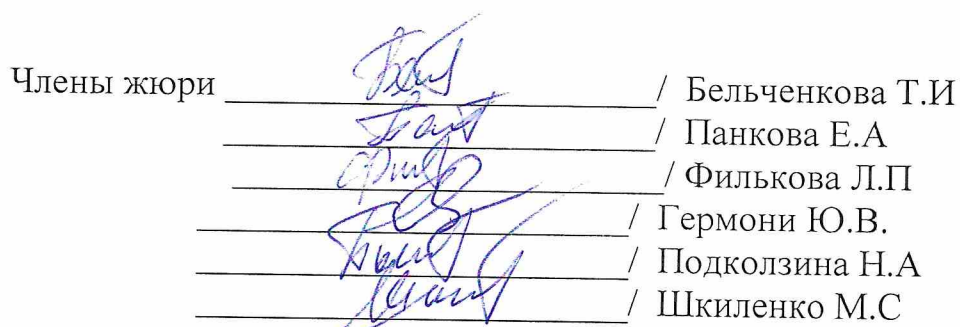 Члены жюри / Бельченкова Т.И
/ Панкова Е.А
/ Филькова Л.П
/ Гермони Ю.В.
/ Подколзина Н.А
/ Шкиленко М.С